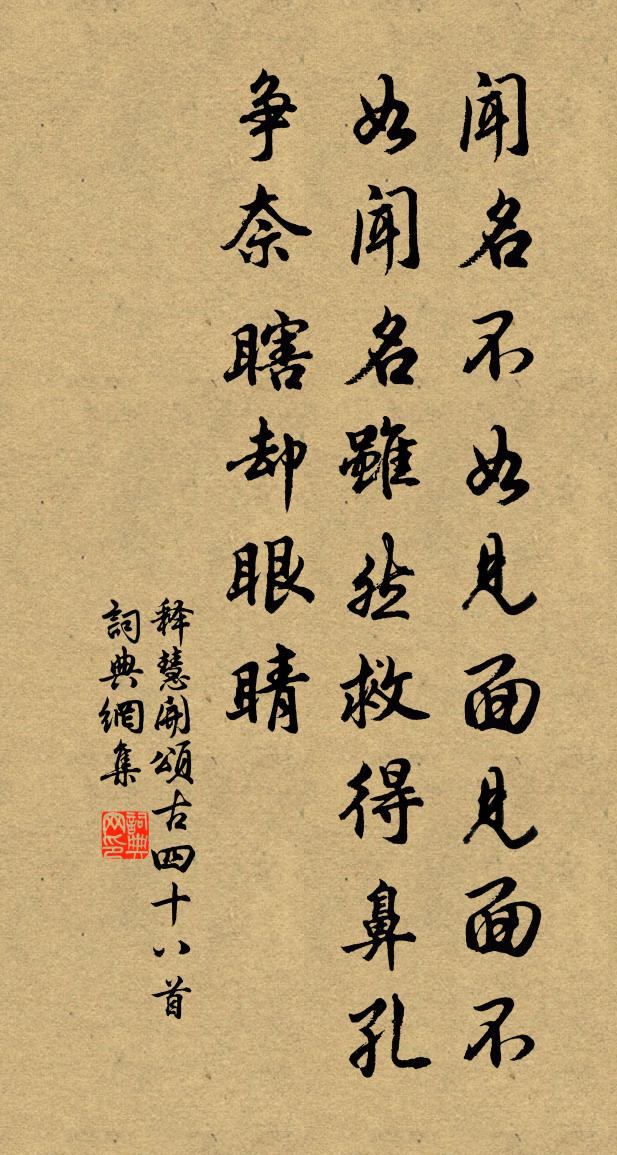 聞名不如見面見面不
如聞名雖然救得鼻孔
争奈瞎却眼睛
釋慧開頌古四十八首
詞典網集
詞典网印